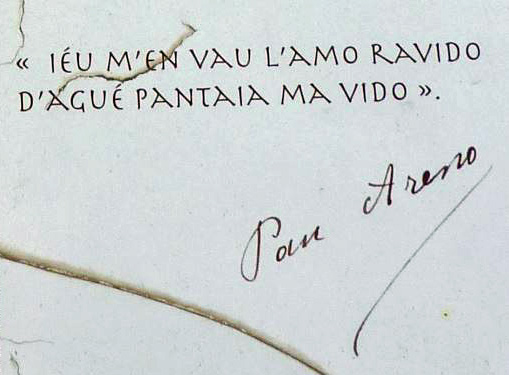 « IÉU M'EN VAU L'AMO RAVIDO
D'AGUÉ PANTAIA MA VIDO ».
Pau Areno